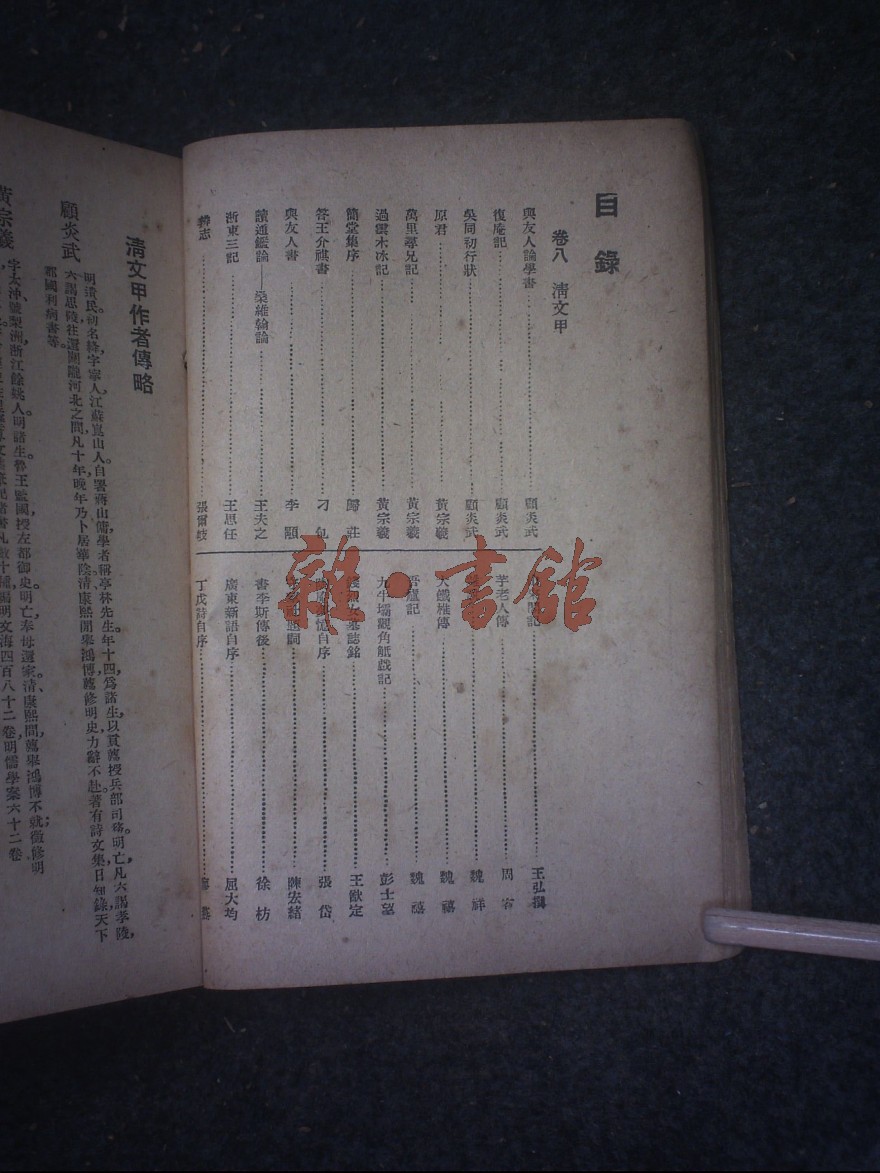 目錄
卷八 清文甲
與友人論學書 顧炎武
復庵記 顧炎武
吳同初行狀 顧炎武
原君 黃宗羲
萬里尋兄記 黃宗羲
過雲木冰記 黃宗羲
簡堂集序 歸莊
答王介祺書 刁包
與友人書 李顒
讀通鑑論——桑維翰論 王夫之
浙東三記 王思任
辨志 張爾岐
記 王弘撰
芋老人傳 周容
魏祥
大鐵椎傳 魏禧
吾廬記 魏禧
九牛壩觀角觝戲記 彭士望
墓誌銘 王猷定
憶自序 張岱
陳宏緒
書李斯傳後 徐枋
廣東新語自序 屈大均
丁戊詩自序
清文甲作者傳略
顧炎武 明遺民初名絳字寧人江蘇崑山人自署蔣山傭學者稱亭林先生。年十四爲諸生以貢薦授兵部司務。明亡凡六謁孝陵，
六謁思陵往還關隴河北之間凡十年晚年乃卜居華陰清康熙間舉鴻博薦修明史力辭不赴。著有詩文集日知錄天下
郡國利病書等。
黃宗羲 字太沖號梨洲浙江餘姚人。明諸生。魯王監國授左都御史明亡奉母還家清康熙間，薦舉鴻博不就徵修明
四百八十二卷明儒學案六十二卷
雜·書館